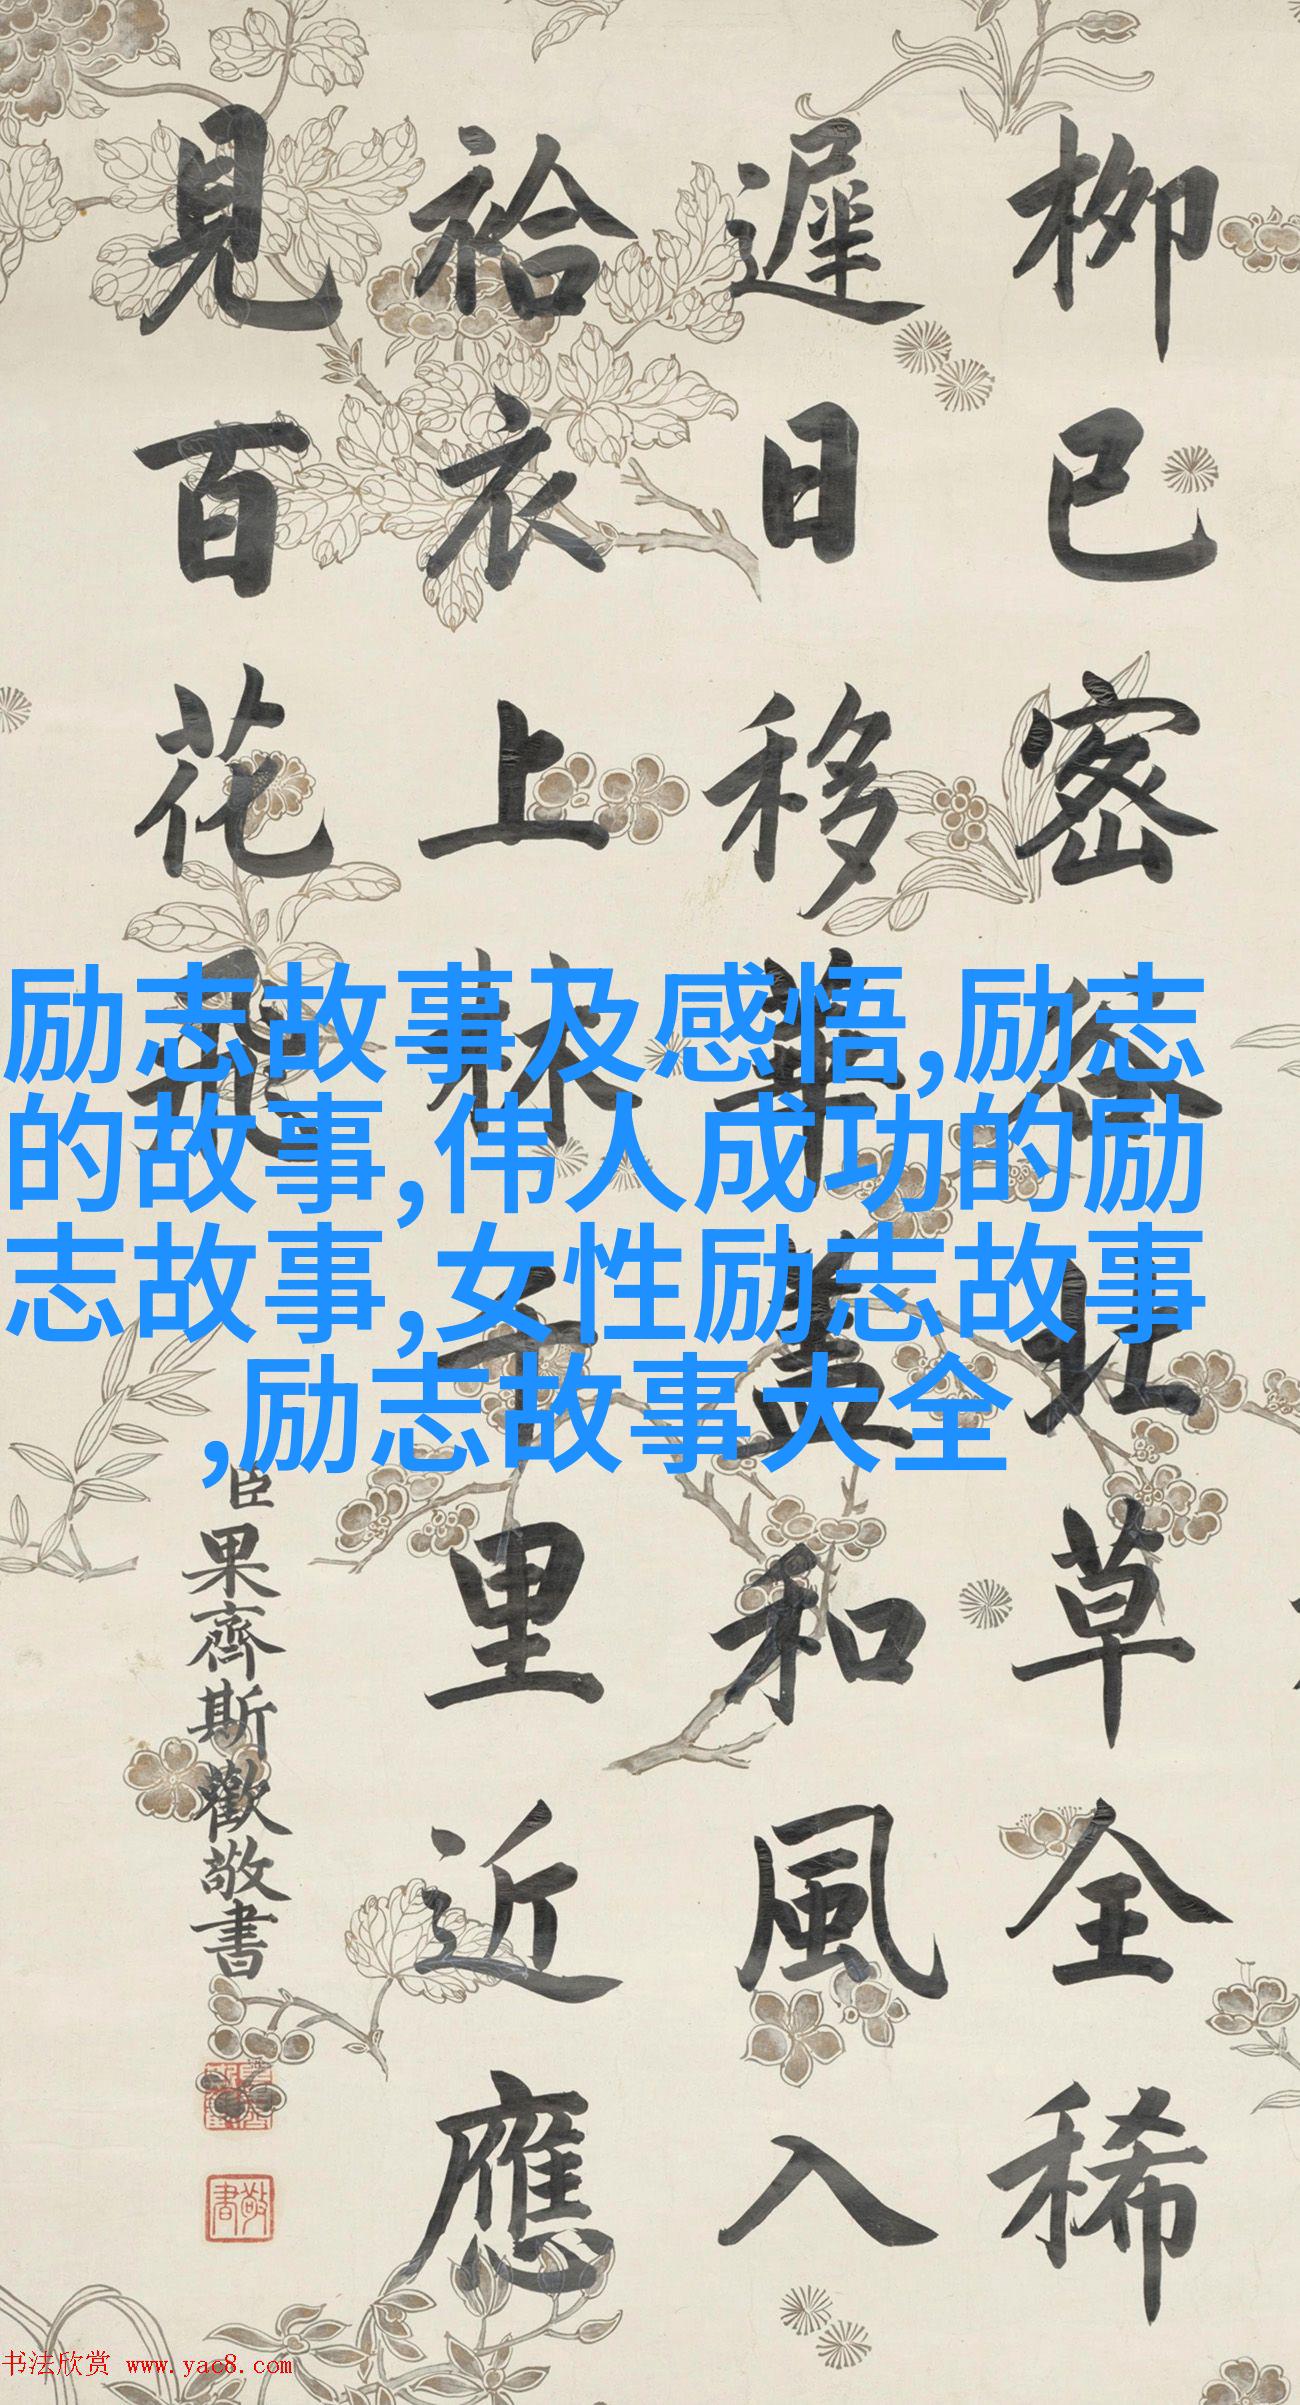 柳已密北草全稀
遲日移華蓋和風入
袷衣上林千里近應
見百花飛
臣果齊斯歡敬書
敬書
励志故事及感悟,励志
的故事,伟人成功的励
志故事,女性励志故事
,励志故事大全
书法欣赏 www.yac8.com